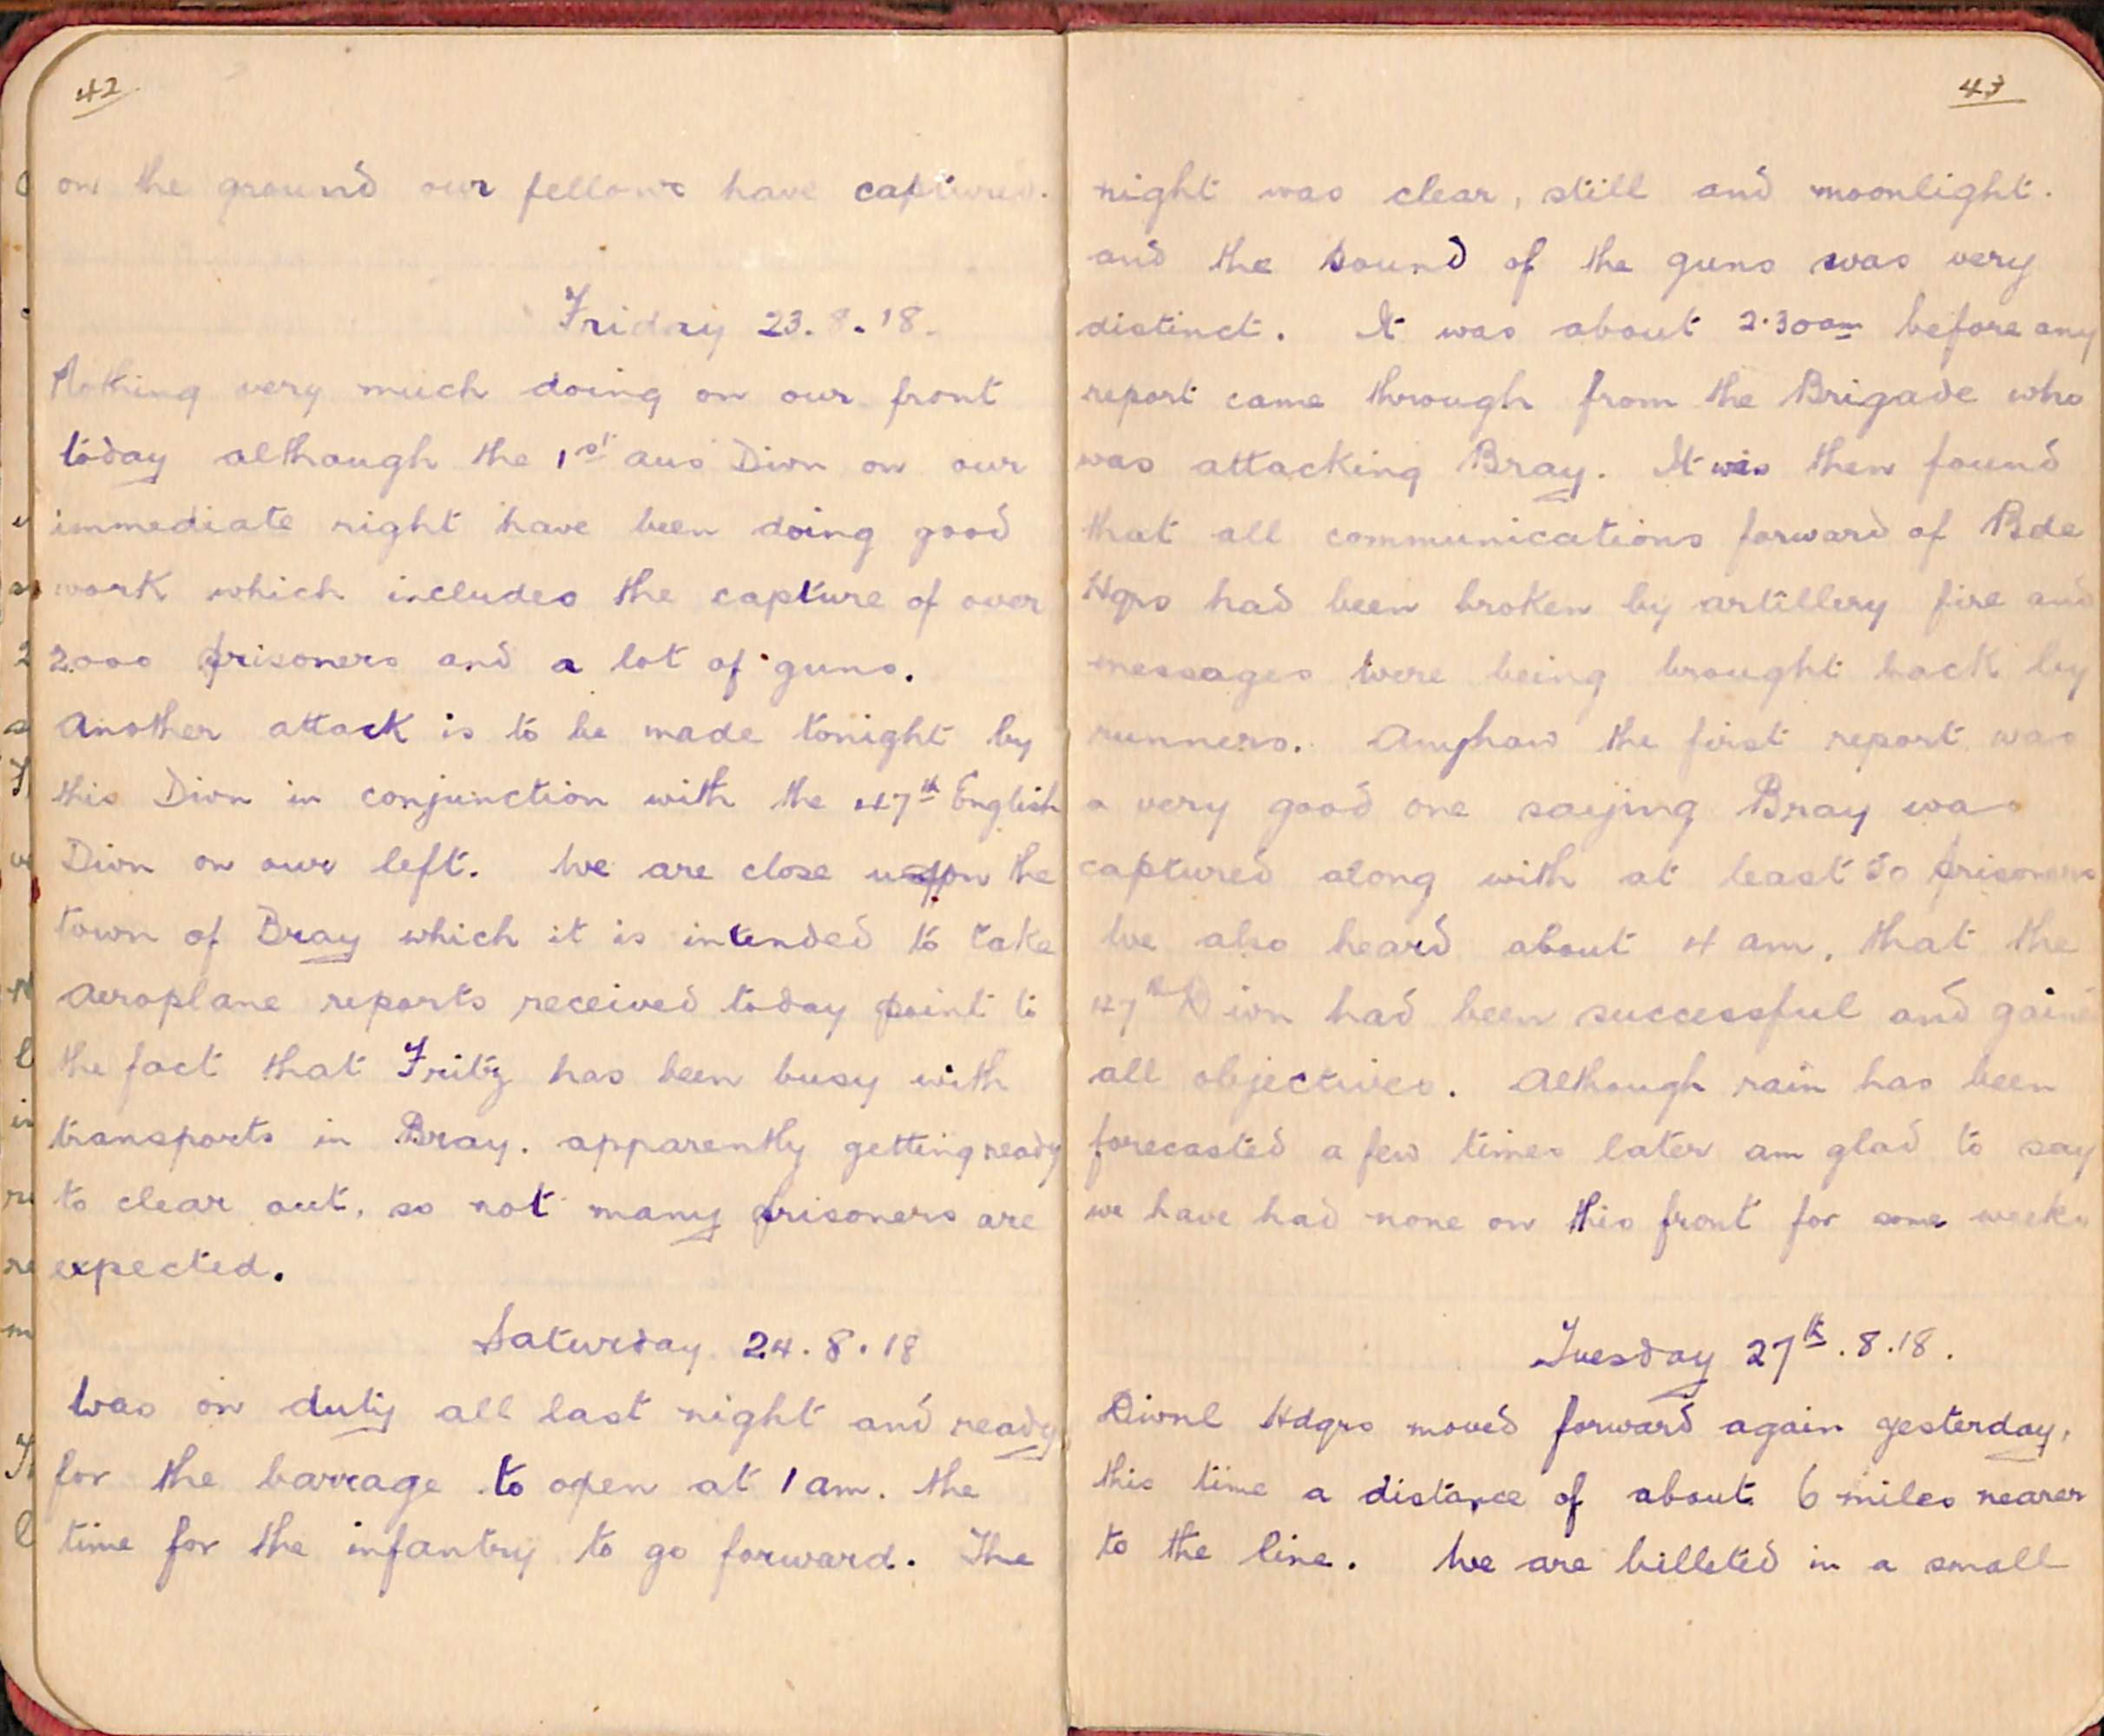 42
on the ground our fellows have captured.
Friday 23.8.18.
Nothing very much doing on our front
today although the 1st aus Divn on our
immediate right have been doing good
work which includes the capture of over
2000 prisoners and a lot of guns.
Another attack is to be made tonight by
this Divn in conjunction with the 47th English
Divn on our left. We are close upon the
town of Bray which it is intended to take
Aeroplane reports received today point to
the fact that Fritz has been busy with
transports in Bray. apparently getting ready
to clear out, so not many prisoners are
expected.
Saturday 24.8.18
Was on duty all last night and ready
for the barrage to open at 1 am. the
time for the infantry to go forward. The
43
night was clear, still and moonlight.
and the sound of the guns was very
distinct. It was about 2.30 am before any
report came through from the Brigade who
was attacking Bray. It was then found
that all communications forward of Bde
Hqrs had been broken by artillery fire and
messages were being brought back by
runners. Anyhow the first report was
a very good one saying Bray was
captured along with at least 50 prisoners
We also heard about 4 am, that the
47th Divn had been successful and gained
all objectives. Although rain has been
forecasted a few times later am glad to say
we have had none on this front for some weeks
Tuesday 27th.8.18.
Divnl Hdqrs moved forward again yesterday,
this time a distance of about 6 miles nearer
to the line. We are billeted in a small